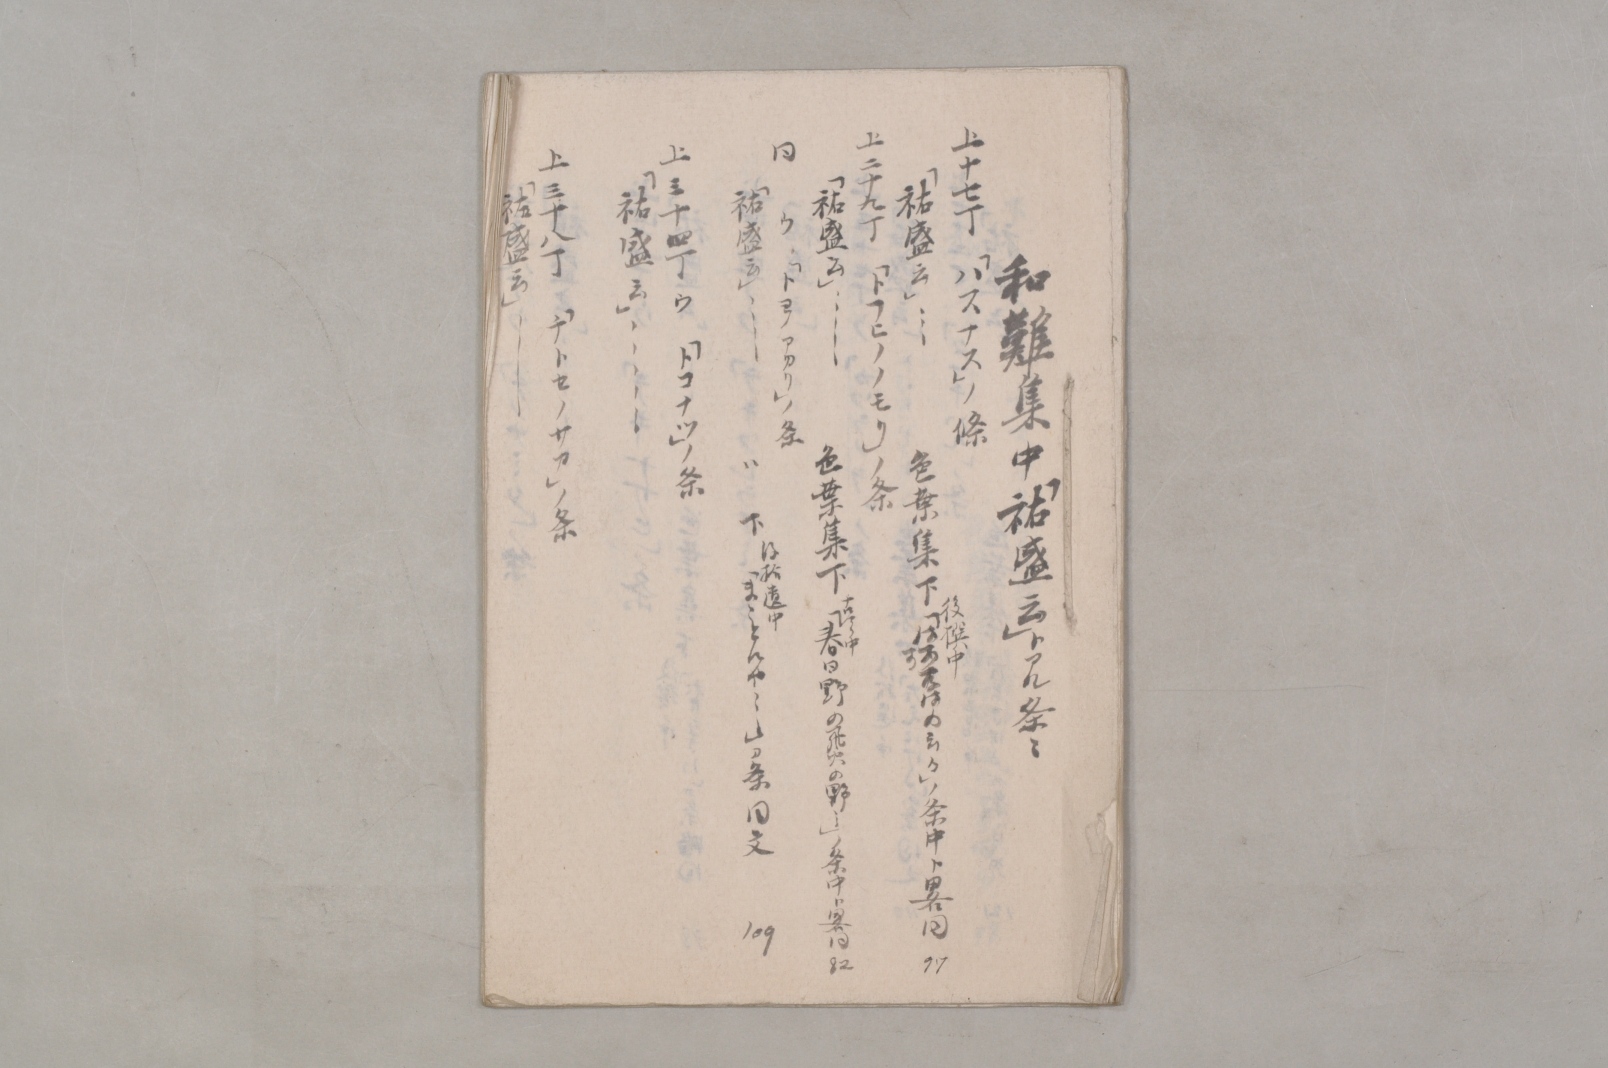 和難集中「祐盛云」トアル条々
上十七丁「ハスナス」ノ條
「祐盛云」……
色葉集下 後撰中 の条中ト畧同 97
上二十九丁「トフヒノノモリ」ノ条
「祐盛云」……
色葉集下 古今中「春日野の飛火の野〻」ノ条中ト畧同 82
同 ウ「トヨアカリ」ノ条
「祐盛云」……
〃 下 後拾遺中 条同文 109
上三十四丁ウ「トコナツ」ノ条
「祐盛云」……
上三十八丁「チトセノサカ」ノ条
「祐盛云」……